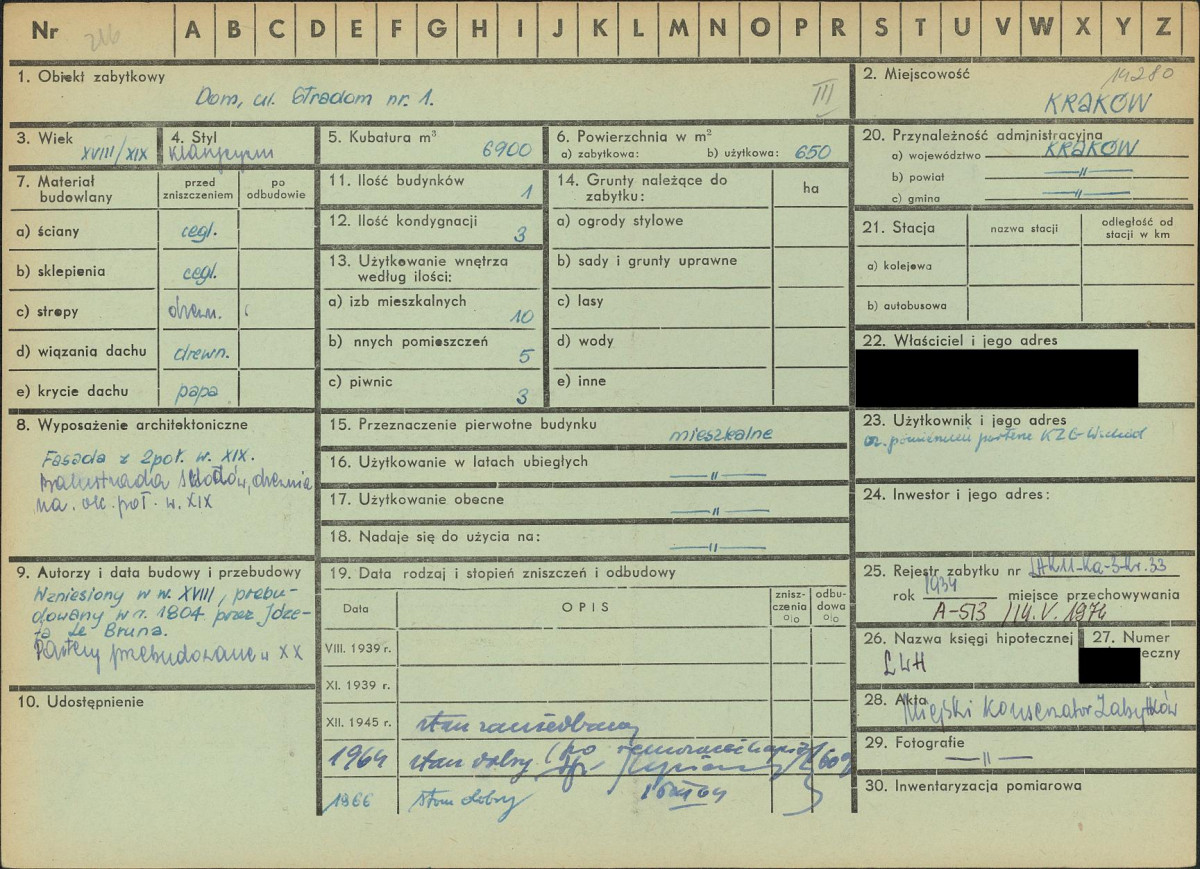 Nr 216 A B C D E F G H I J K L M N O P R S T U V W X Y Z
1. Obiekt zabytkowy
Dom, ul. Stradom nr. 1.
III
2. Miejscowość
14280
KRAKÓW
3. Wiek
XVIII/XIX
4. Styl
klasycyzm
5. Kubatura m³
6900
6. Powierzchnia w m²
a) zabytkowa: b) użytkowa: 650
20. Przynależność administracyjna
a) województwo KRAKÓW
b) powiat —„—
c) gmina —„—
7. Materiał budowlany
przed zniszczeniem
po odbudowie
a) ściany cegl.
b) sklepienia cegl.
c) stropy drewn.
d) wiązania dachu drewn.
e) krycie dachu papa
11. Ilość budynków
1
12. Ilość kondygnacji
3
13. Użytkowanie wnętrza
według ilości:
a) izb mieszkalnych
10
b) nnych pomieszczeń
5
c) piwnic
3
14. Grunty należące do
zabytku:
ha
a) ogrody stylowe
b) sady i grunty uprawne
c) lasy
d) wody
e) inne
21. Stacja
nazwa stacji
odległość od
stacji w km
a) kolejowa
b) autobusowa
22. Właściciel i jego adres
23. Użytkownik i jego adres
KZG-Wschód
24. Inwestor i jego adres:
8. Wyposażenie architektoniczne
Fasada z 2 poł. w. XIX.
Balustrada schodów, drewnia
na. ok. poł. w. XIX
15. Przeznaczenie pierwotne budynku
mieszkalne
16. Użytkowanie w latach ubiegłych
—„—
17. Użytkowanie obecne
—„—
18. Nadaje się do użycia na:
—„—
9. Autorzy i data budowy i przebudowy
Wzniesiony w w. XVIII, przebu-
dowany w r. 1804 przez Józe-
fa Le Bruna.
Partery przebudowane w XX
10. Udostępnienie
19. Data rodzaj i stopień zniszczeń i odbudowy
Data
OPIS
znisz-
czenia
%
odbu-
dowa
%
VIII. 1939 r.
XI. 1939 r.
XII. 1945 r. stan zaniedbany
1964 stan dobry (po remoncie kapit.
1966 stan dobry
25. Rejestr zabytku nr
rok 1934 miejsce przechowywania
A-513 /14. V. 1974
26. Nazwa księgi hipotecznej
LWH
27. Numer
eczny
28. Akta
Miejski Konserwator Zabytków
29. Fotografie
—„—
30. Inwentaryzacja pomiarowa